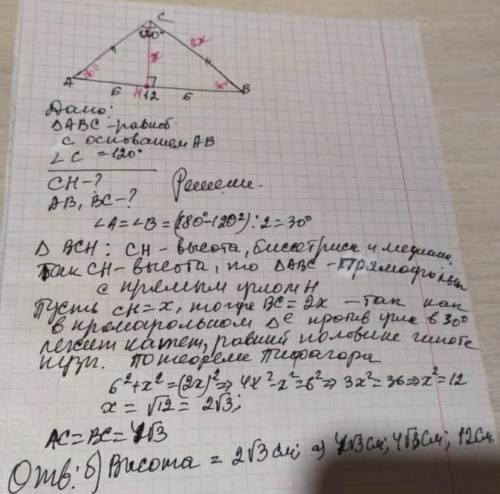 C
120°
2x
x
A 30° 6 H 12 6 30° B
Дано:
ΔABC - равноб.
с основанием AB
∠C = 120°
CH - ?
AB, BC - ?
Решение.
∠A = ∠B = (180° - 120°) : 2 = 30°
Δ BCH: CH - высота, биссектриса и медиана.
Так CH - высота, то ΔABC - прямоугольн
с прямым углом H
Пусть CH = x, тогда BC = 2x - так как
в прямоугольном Δе против угла в 30°
лежит катет, равный половине гипоте
нузы. По теореме Пифагора
6² + x² = (2x)² ⇒ 4x² - x² = 6² ⇒ 3x² = 36 ⇒ x² = 12
x = √12 = 2√3;
AC = BC = 4√3
Отв: б) Высота = 2√3 см; а) 4√3 см; 4√3 см; 12 см.